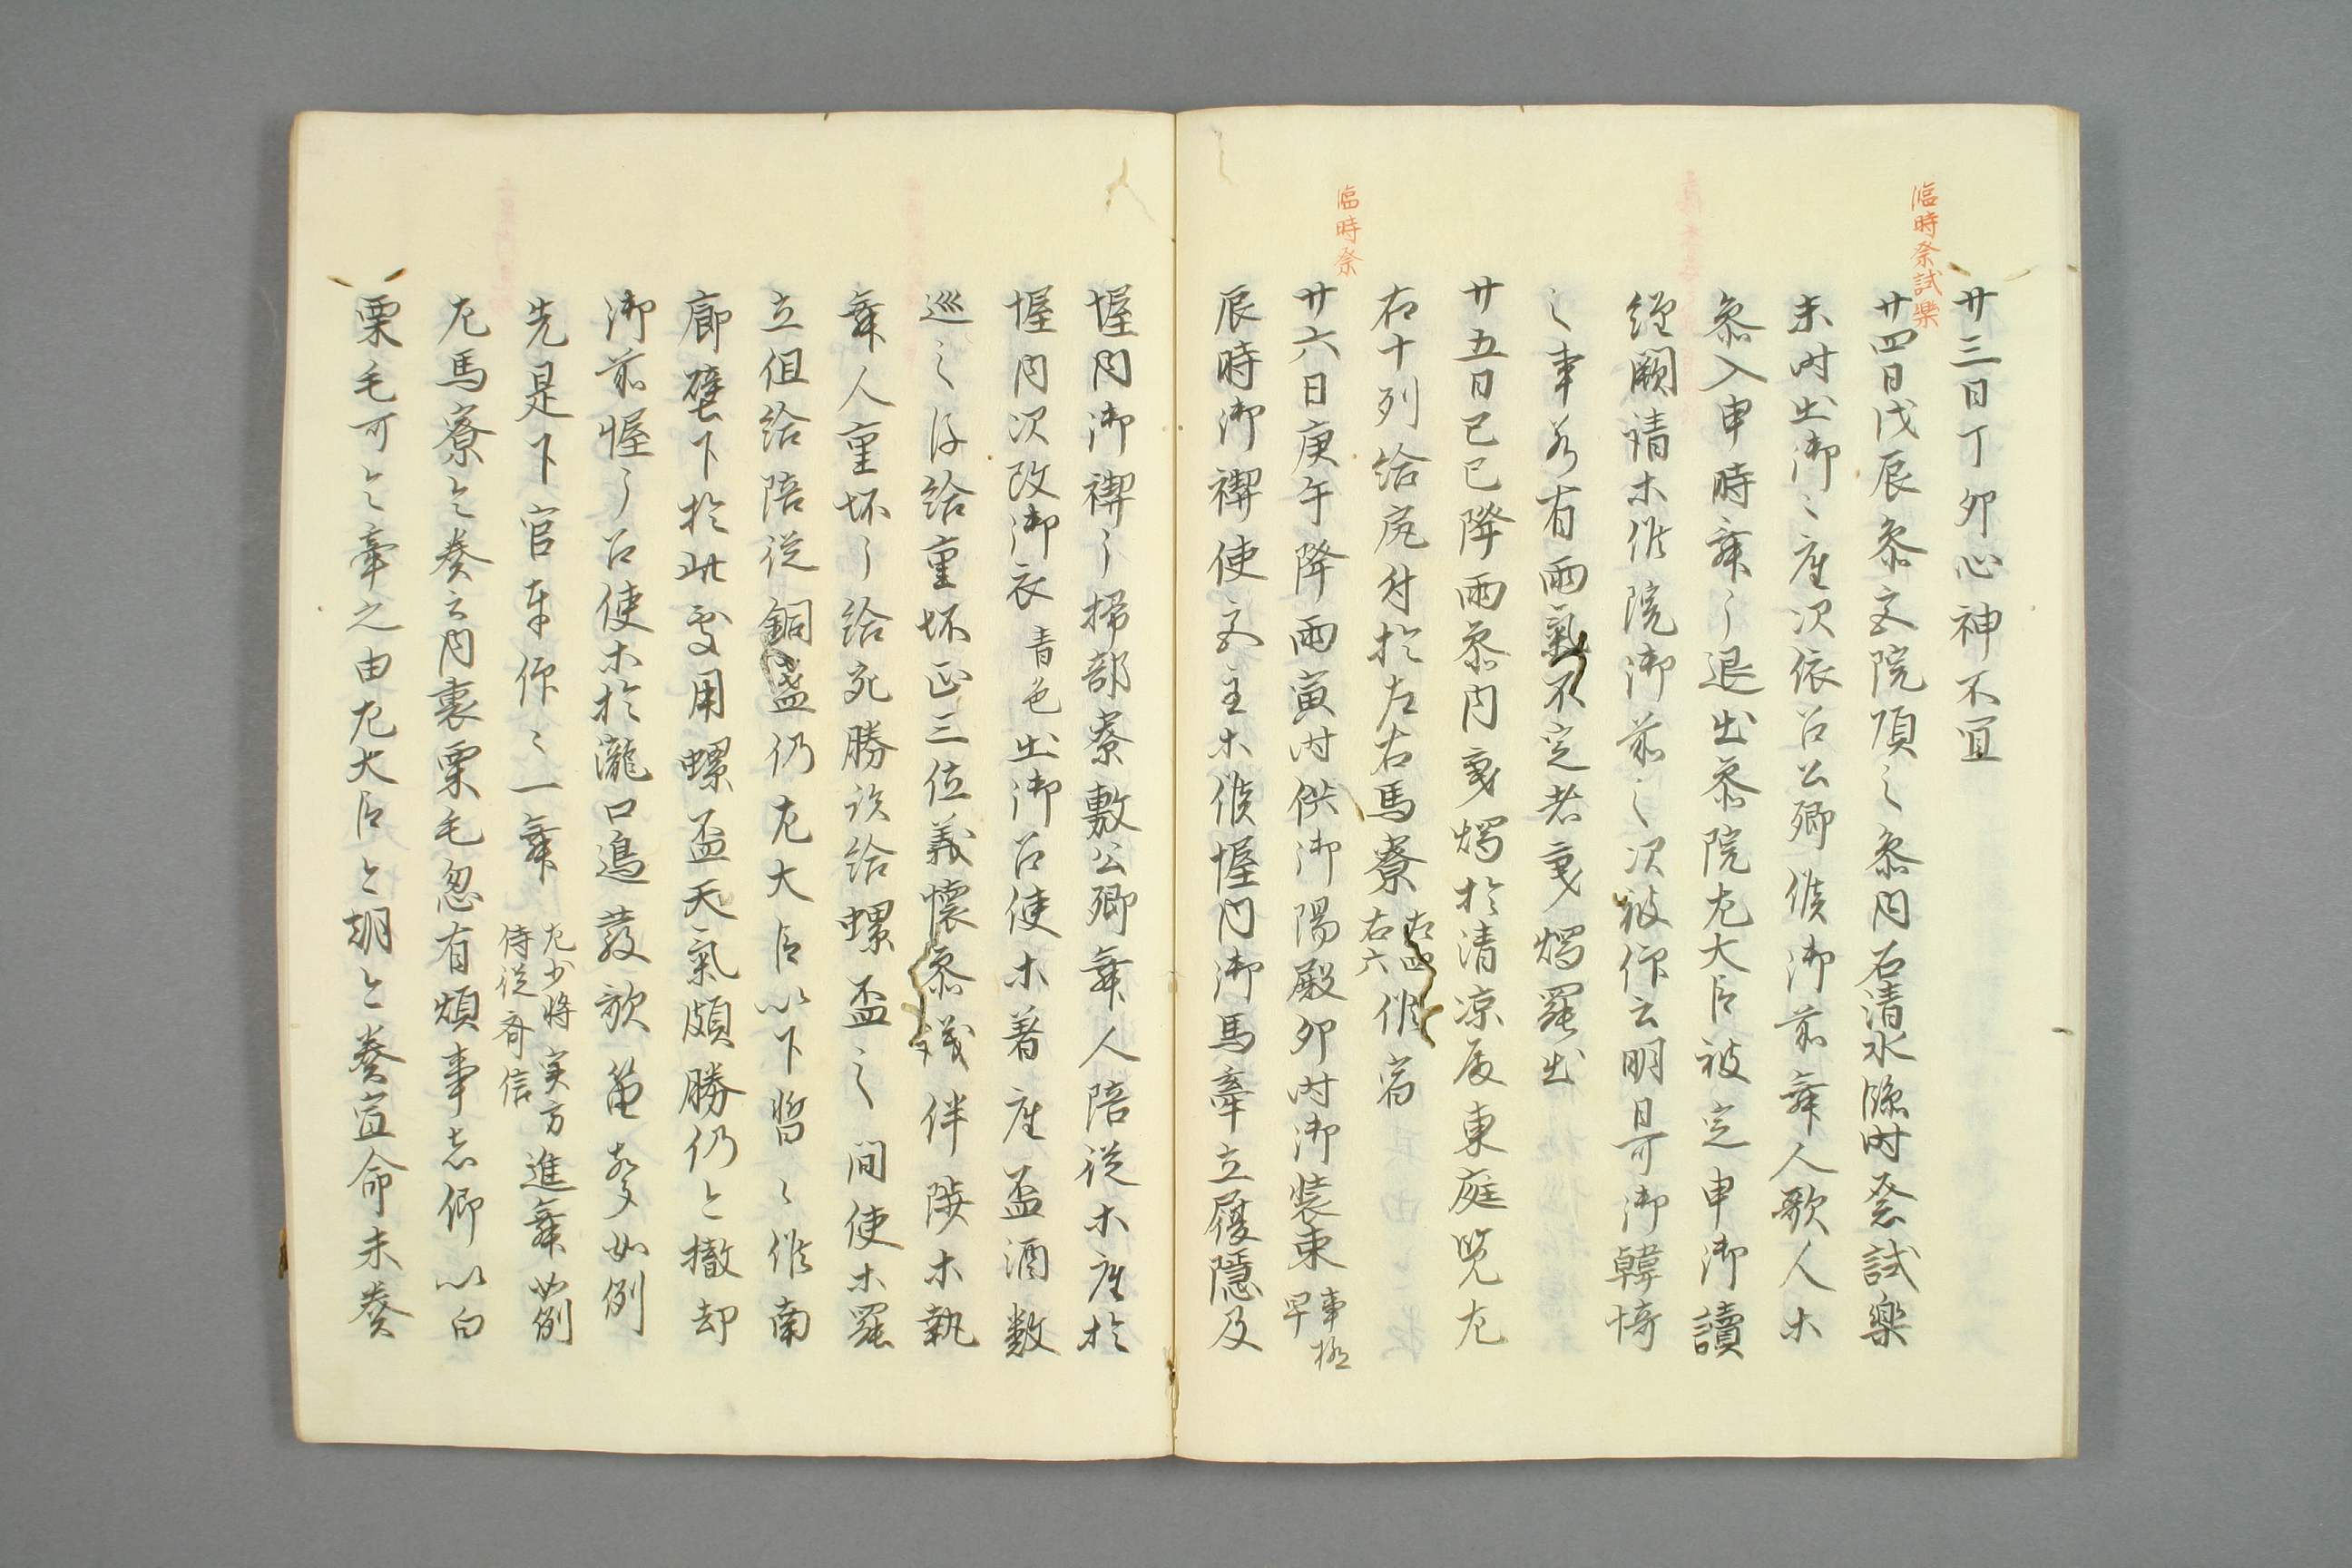 廿三日丁卯心神不宜
臨時祭試樂
廿四日戊辰参院頃之参内石清水臨時祭試樂
未時出御々座次依召公卿候御前舞人歌人ホ
参入申時舞了退出参院左大臣被定申御讀
經闕請ホ候院御前之次被仰云明日可御
之事若有雨氣不定者罷出
廿五日己巳降雨参内於清凉殿東庭覧左
右十列給宛付於左右馬寮右六候宿
臨時祭
廿六日庚午降雨寅時供御湯殿卯時御装束事極早
辰時御禊使主ホ候幄内御馬牽立隱及
幄内御禊了掃部寮敷公卿舞人陪従ホ座於
幄内次改御衣青色出御召使ホ著座盃酒数
巡之後給重坏正三位義懷参議伴ホ執
舞人重坏了給勝給螺盃之間使ホ罷
立但給陪従銅盞仍左大臣以下暫候南
廊壁下於此用螺盃天氣頗勝仍撤却
御前幄了召使ホ於瀧口發歌笛如例
先是下官奉仰々一舞左少將実方侍従斉信進舞如例
左馬寮奏云内裏栗毛忽有煩事者仰以白
栗毛可牽之由左大臣奏宣命未奏